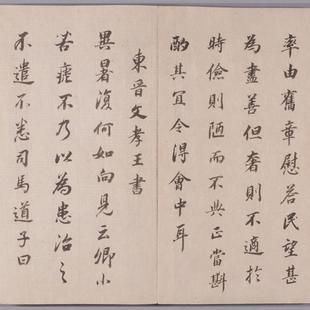 率由舊章慰荅民望甚
為盡善但奢則不適於
時儉則陋而不典正當斟
酌其宜令得會中耳
東晉文孝王書
異暑復何如向見云卿小
苦瘧不乃以為患治之
不遣不悉司馬道子曰